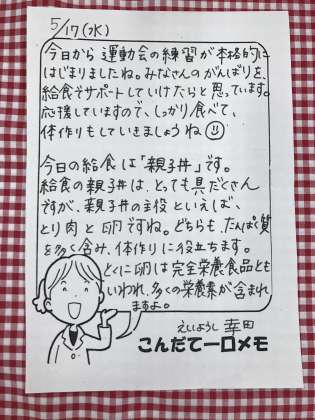 5/17(水)
今日から運動会の練習が本格的に
はじまりましたね。みなさんのがんばりを、
給食でサポートしていけたらと思っています。
応援していますので、しっかり食べて、
体作りもしていきましょうね
今日の給食は「親子丼」です。
給食の親子丼は、とっても具だくさん
ですが、親子丼の主役といえば、
とり肉と卵ですね。どちらも、たんぱく質
を多く含み、体作りに役立ちます。
とくに卵は完全栄養食品とも
いわれ、多くの栄養素が含まれ
ますよ。
えいようし 幸田
こんだて一口メモ